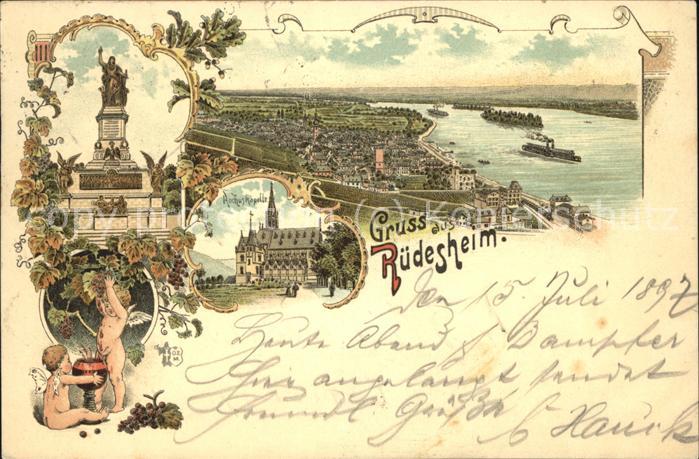 Rochus Kapelle
Gruss aus
Rüdesheim.
Den 15. Juli 1897
Heute Abend p Dampfer
hier angelangt sendet
freundl Grüße
C Hauck